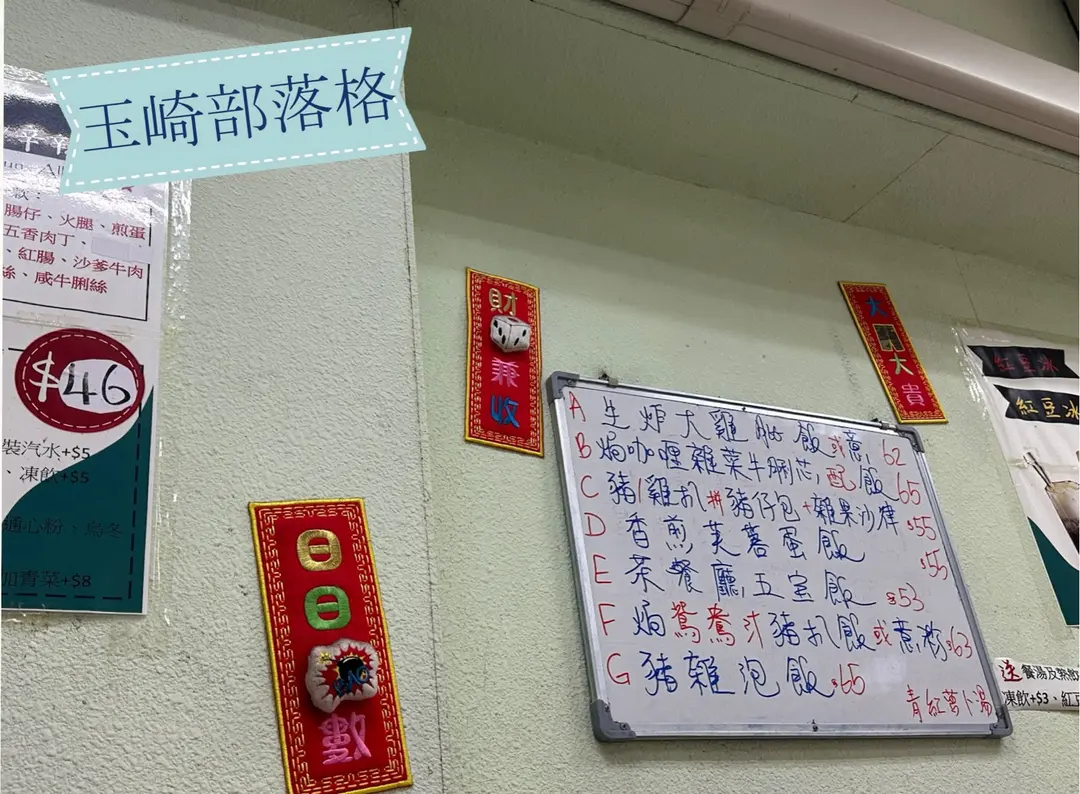 玉崎部落格
款：
腸仔、火腿、煎蛋
五香肉丁、
、紅腸、沙爹牛肉
絲、咸牛脷絲
$46
裝汽水+$5
、凍飲+$5
通心粉、烏冬
加青菜+$8
財
兼
收
大
大
貴
日
日
數
A 生炸大雞髀飯或意 62
B 焗咖喱雜菜牛脷芯,配飯 65
C 豬/雞扒拼豬仔包+雜果沙律 $55
D 香煎芙蓉蛋飯 $55
E 茶餐廳五宝飯 $53
F 焗鴛鴦汁豬扒飯或意粉 $63
G 豬雜泡飯 $65
青紅蘿卜湯
紅豆冰
紅豆冰
送餐湯及熱飲
凍飲+$3、紅豆